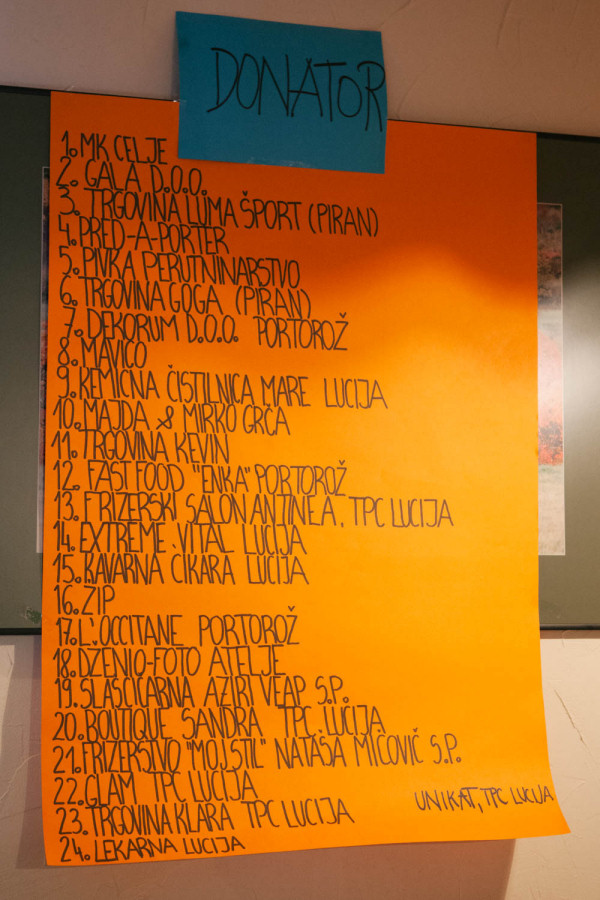 DONATOR
1. MK CELJE
2. GALA D.O.O.
3. TRGOVINA LUMA ŠPORT (PIRAN)
4. PRED-A-PORTER
5. PIVKA PERUTNINARSTVO
6. TRGOVINA GOGA (PIRAN)
7. DEKORUM D.O.O. PORTOROŽ
8. MAVICO
9. KEMIČNA ČISTILNICA MARE LUCIJA
10. MAJDA & MIRKO GRČA
11. TRGOVINA KEVIN
12. FAST FOOD "ENKA" PORTOROŽ
13. FRIZERSKI SALON ANTINEA, TPC LUCIJA
14. EXTREME VITAL LUCIJA
15. KAVARNA CIKARA LUCIJA
16. ZIP
17. L'OCCITANE PORTOROŽ
18. DŽENIO-FOTO ATELJE
19. SLAŠČIČARNA AZIRI VEAP S.P.
20. BOUTIQUE SANDRA TPC LUCIJA
21. FRIZERSTVO "MOJ STIL" NATAŠA MIČOVIČ S.P.
22. GLAM TPC LUCIJA
UNIKAT, TPC LUCIJA
23. TRGOVINA KLARA TPC LUCIJA
24. LEKARNA LUCIJA